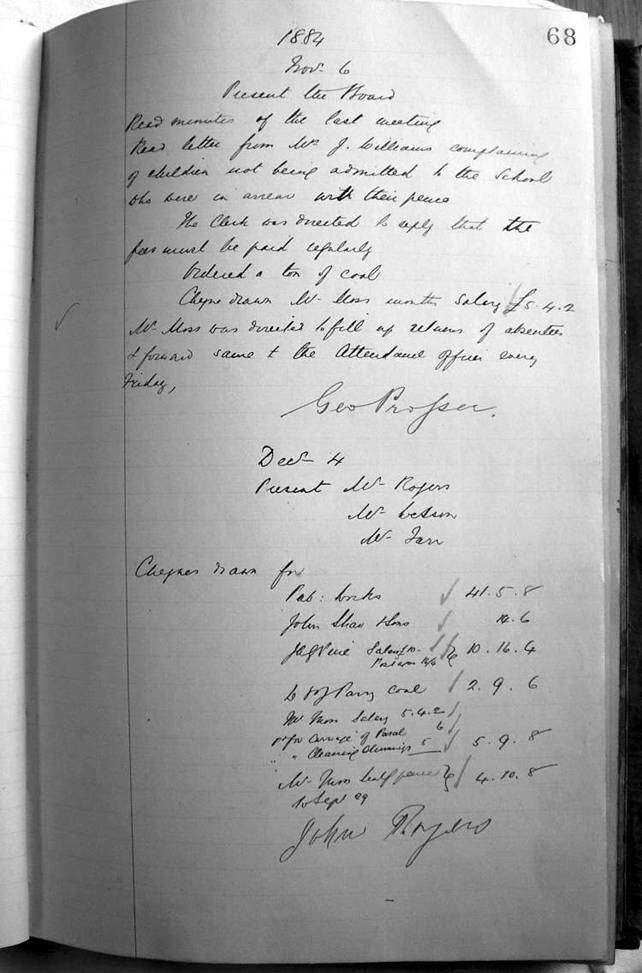 68
1884
Nov. 6
Present the Board
Read minutes of the last meeting
Read letter from Mr J. Williams complaining
of children not being admitted to the School
who were in arrear with their pence
The Clerk was directed to reply that the
fees must be paid regularly
Ordered a ton of coal
Cheque drawn Mr Moss months Salary £5.4.2
Mr Moss was directed to fill up returns of absentees
& forward same to the Attendance officer every
Friday,
Geo Prosser.
Decr 4
Present Mr Rogers
Mr
Mr Farr
Cheques drawn for
Pub: Works 41.5.8
John Shaw & Sons 14.6
Salary 10 10.16.4
Parry coal 2.9.6
Mr Moss Salary 5.4.2
Do for Carriage of Parcel 6
" " Cleaning Chimneys 5 5.9.8
Mr Moss half pence 4.10.8
to Sept 29
John Rogers